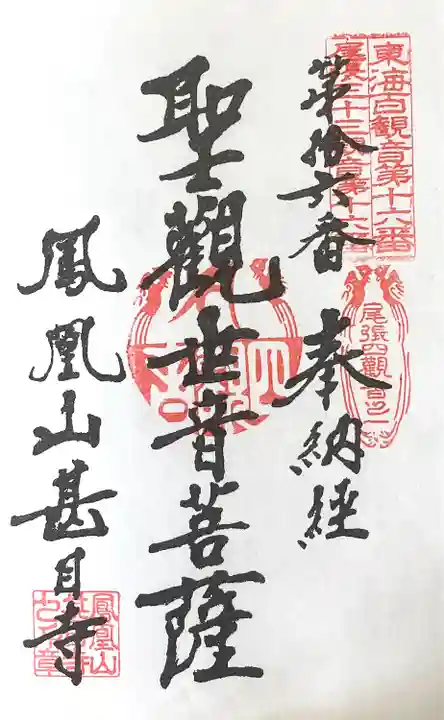 東海百観音第十六番
尾張三十三観音第十六番
第拾六番
奉納経
尾張四観音之一
聖觀世音菩薩
鳳凰山甚目寺
鳳凰山